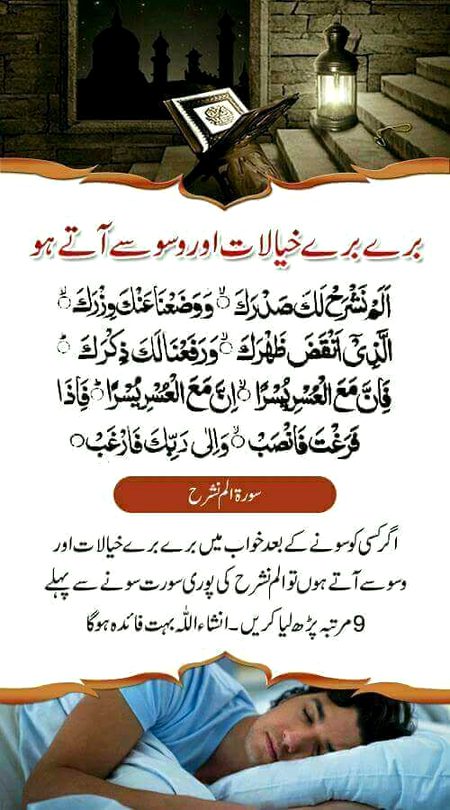 برے برے خیالات اور وسوسے آتے ہو
اَلَمْ نَشْرَحْ لَكَ صَدْرَكَ ۙ وَوَضَعْنَا عَنْكَ وِزْرَكَ ۙ
الَّذِیْۤ اَنْقَضَ ظَهْرَكَ ۙ وَرَفَعْنَا لَكَ ذِكْرَكَ ؕ
فَاِنَّ مَعَ الْعُسْرِ یُسْرًا ۙ اِنَّ مَعَ الْعُسْرِ یُسْرًا ؕ فَاِذَا
فَرَغْتَ فَانْصَبْ ۙ وَاِلٰى رَبِّكَ فَارْغَبْ ۠
سورۃ الم نشرح
اگر کسی کو سونے کے بعد خواب میں برے برے خیالات اور
وسوسے آتے ہوں تو الم نشرح کی پوری سورت سونے سے پہلے
9 مرتبہ پڑھ لیا کریں۔ انشاء اللہ بہت فائدہ ہوگا